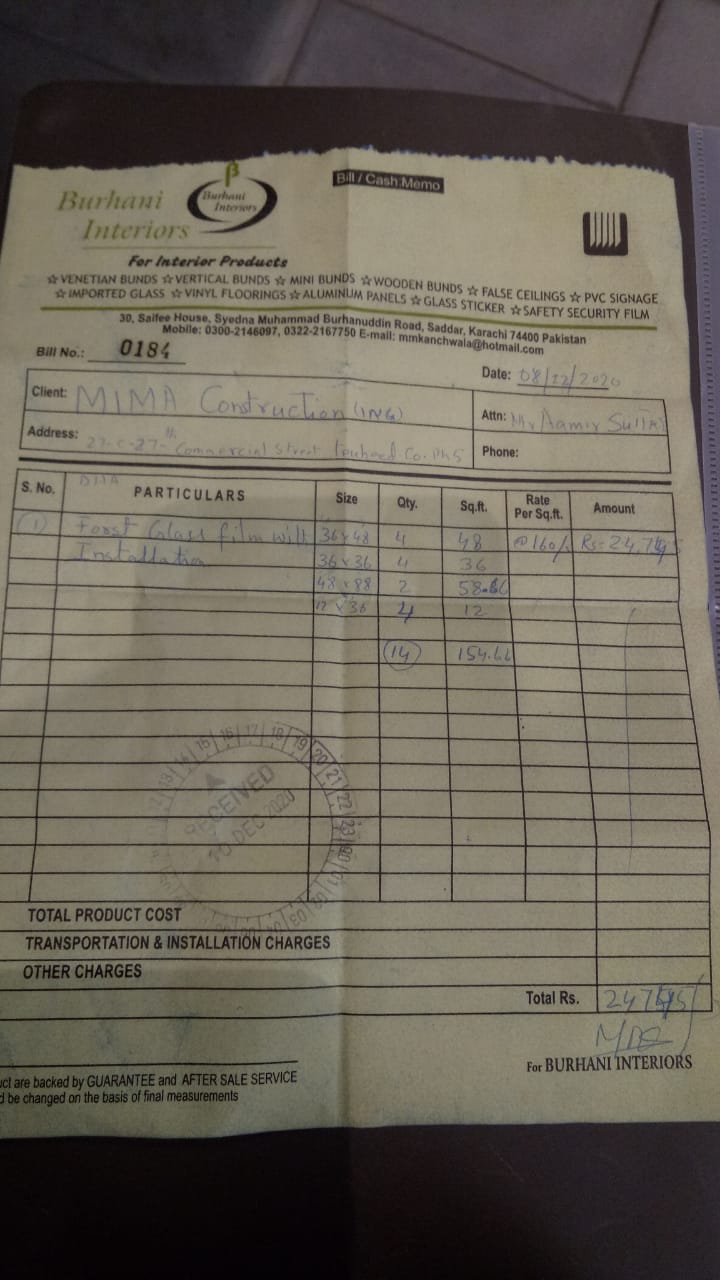 Bill / Cash.Memo
Burhani
Interiors
β
Burhani
Interiors
For Interior Products
☆ VENETIAN BUNDS ☆ VERTICAL BUNDS ☆ MINI BUNDS ☆ WOODEN BUNDS ☆ FALSE CEILINGS ☆ PVC SIGNAGE
☆ IMPORTED GLASS ☆ VINYL FLOORINGS ☆ ALUMINUM PANELS ☆ GLASS STICKER ☆ SAFETY SECURITY FILM
30, Saifee House, Syedna Muhammad Burhanuddin Road, Saddar, Karachi 74400 Pakistan
Mobile: 0300-2146097, 0322-2167750 E-mail: mmkanchwala@hotmail.com
Bill No.: 0184
Date: 08/12/2020
Client: MIMA Construction (ING)
Attn: Mr Aamir
Address: 27-C-27th Commercial Street Touheed Co. Ph5
DHA
Phone:
S. No. PARTICULARS Size Qty. Sq.ft. Rate Per Sq.ft. Amount
(1) Forst Glass film with 36x48 4 48 @160/ Rs=
Installation 36x36 4 36
48x88 2 58.66
12x36 4 12
14 154.66
RECEIVED
10 DEC 2020
TOTAL PRODUCT COST
TRANSPORTATION & INSTALLATION CHARGES
OTHER CHARGES
Total Rs.
For BURHANI INTERIORS
are backed by GUARANTEE and AFTER SALE SERVICE
be changed on the basis of final measurements